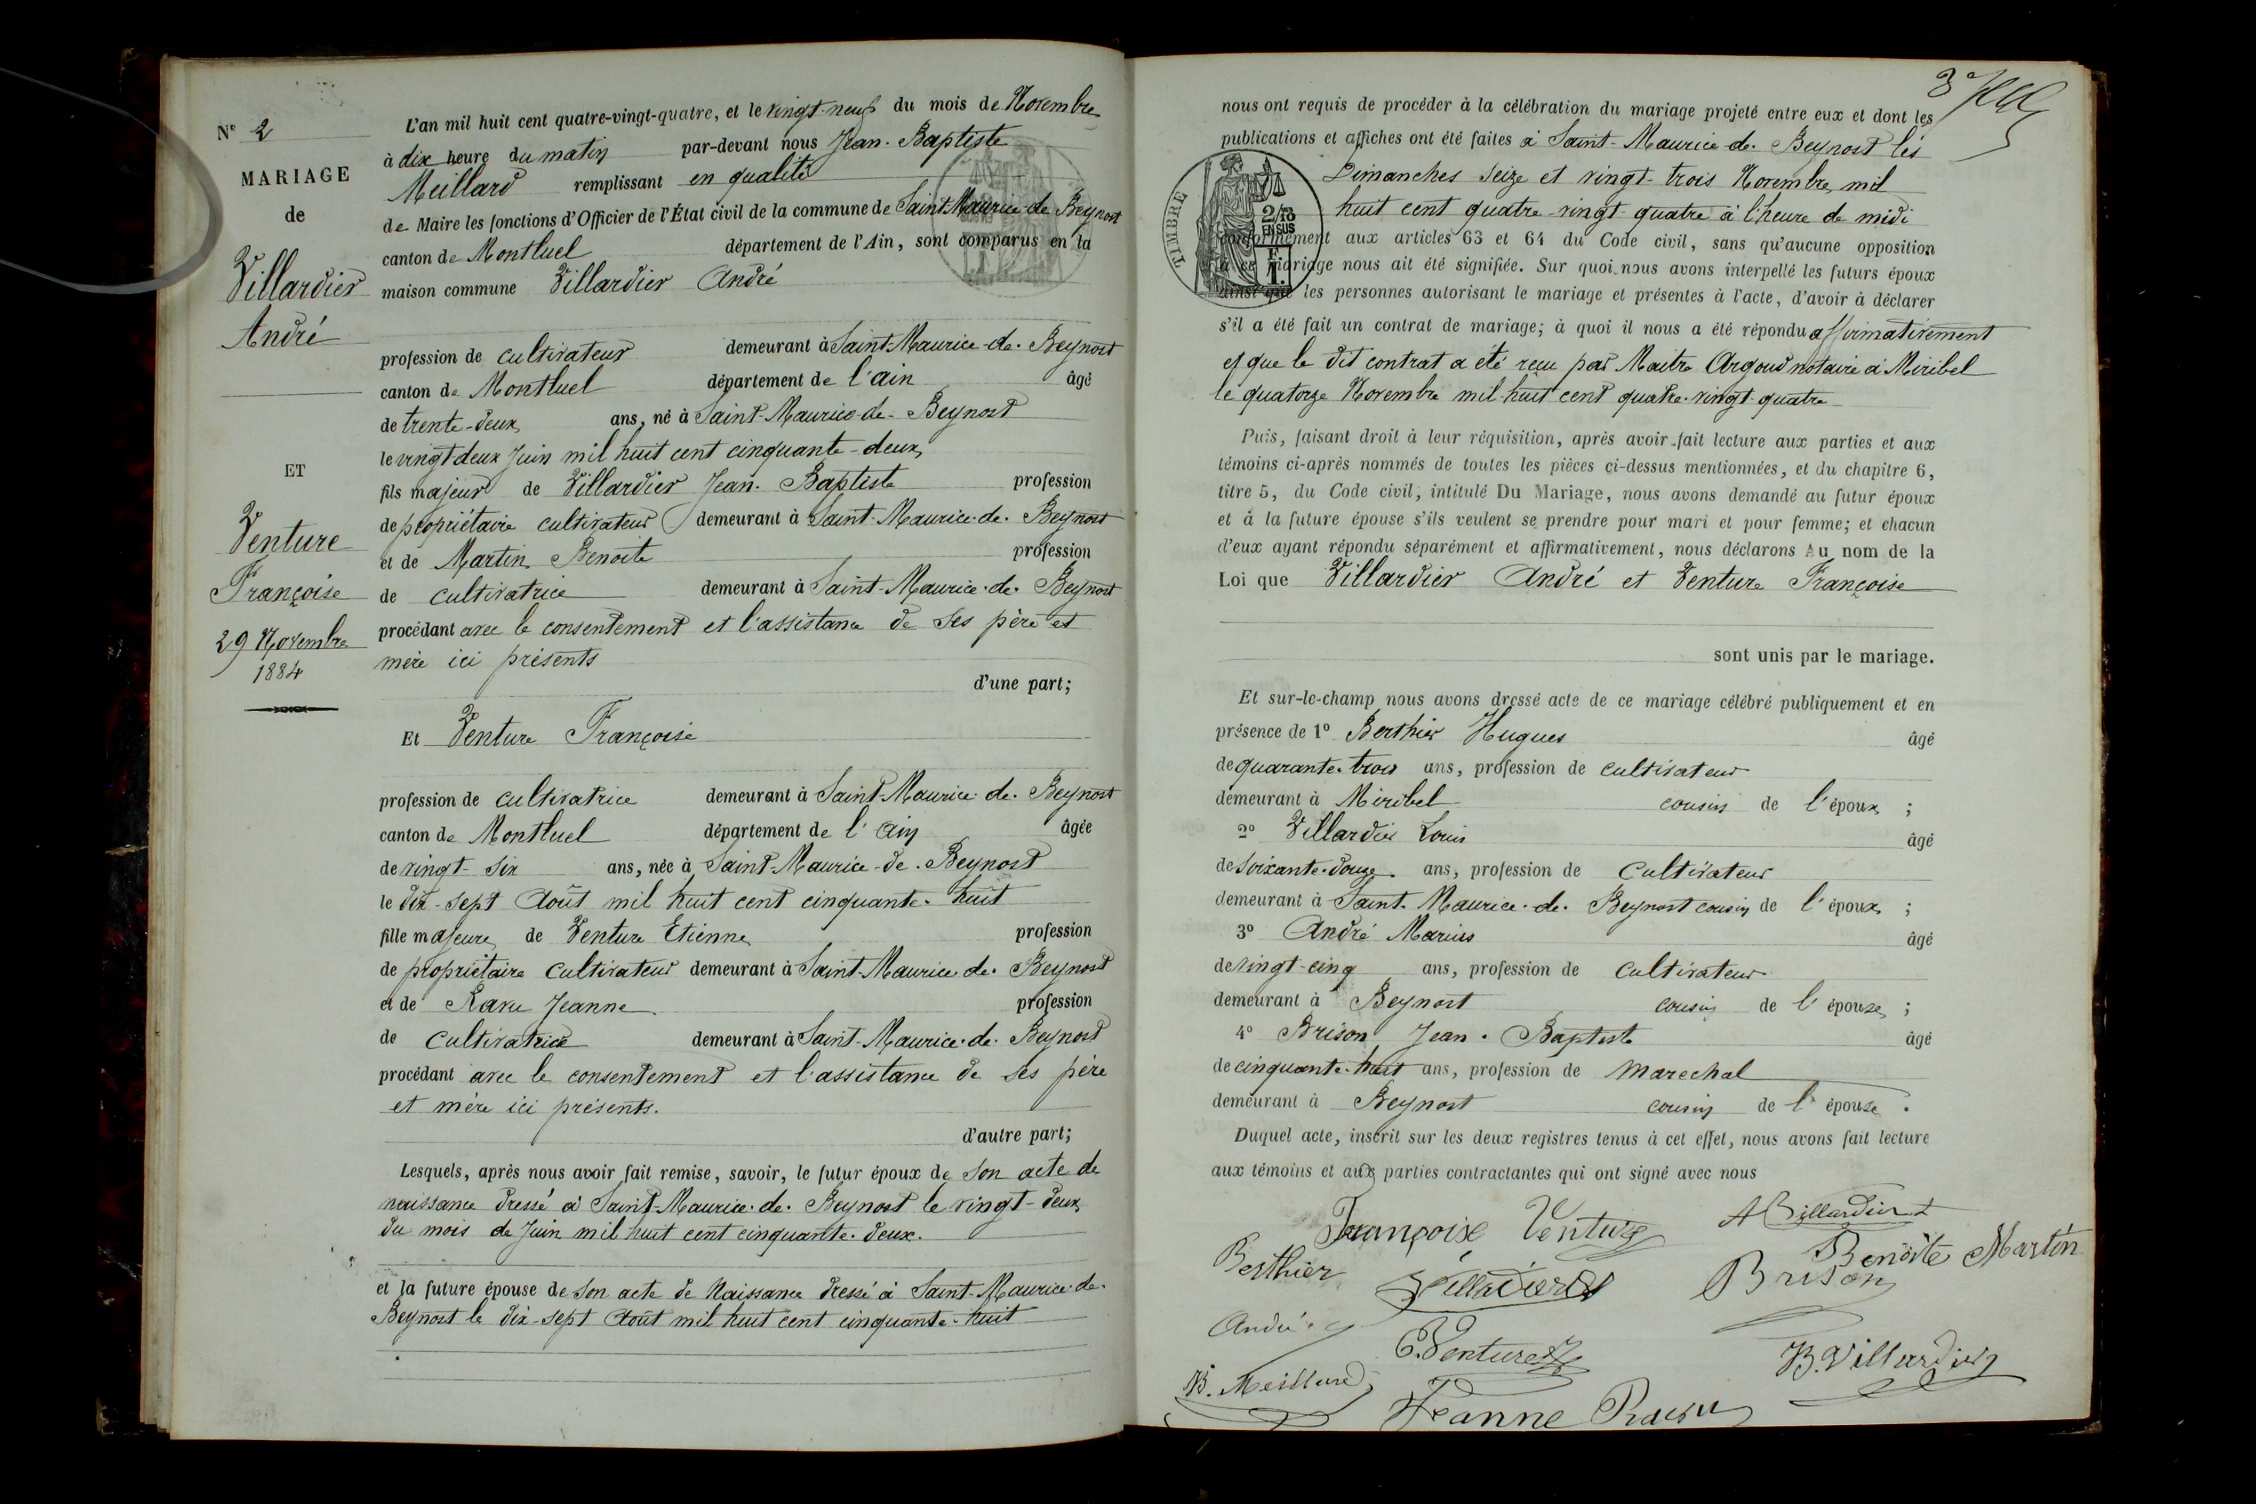 Nº 2
MARIAGE
de
Villardier
André
ET
Venture
Françoise
29 Novembre
1884
L'an mil huit cent quatre-vingt-quatre, et le vingt-neuf du mois de Novembre
à dix heure du matin par-devant nous Jean-Baptiste
Meillard remplissant en qualité
de Maire les fonctions d'Officier de l'État civil de la commune de Saint-Maurice-de-Beynost
canton de Montluel département de l'Ain, sont comparus en la
maison commune Villardier André
profession de cultivateur demeurant à Saint-Maurice-de-Beynost
canton de Montluel département de l'ain âgé
de trente-deux ans, né à Saint-Maurice-de-Beynost
le vingt deux Juin mil huit cent cinquante-deux
fils majeur de Villardier Jean-Baptiste profession
de propriétaire cultivateur demeurant à Saint-Maurice-de-Beynost
et de Martin Benoite profession
de cultivatrice demeurant à Saint-Maurice-de-Beynost
procédant avec le consentement et l'assistance de ses père et
mère ici présents
d'une part;
Et Venture Françoise
profession de cultivatrice demeurant à Saint-Maurice-de-Beynost
canton de Montluel département de l'ain âgée
de vingt-six ans, née à Saint-Maurice-de-Beynost
le dix-sept Août mil huit cent cinquante-huit
fille majeure de Venture Etienne profession
de propriétaire cultivateur demeurant à Saint-Maurice-de-Beynost
et de Ravu Jeanne profession
de cultivatrice demeurant à Saint-Maurice-de-Beynost
procédant avec le consentement et l'assistance de ses père
et mère ici présents.
d'autre part;
Lesquels, après nous avoir fait remise, savoir, le futur époux de son acte de
naissance dressé à Saint-Maurice-de-Beynost le vingt-deux
du mois de Juin mil huit cent cinquante-deux.
et la future épouse de son acte de Naissance dressé à Saint-Maurice-de-
Beynost le dix-sept Août mil huit cent cinquante-huit
3e
nous ont requis de procéder à la célébration du mariage projeté entre eux et dont les
publications et affiches ont été faites à Saint-Maurice-de-Beynost les
Dimanches Seize et vingt-trois Novembre mil
huit cent quatre-vingt-quatre à l'heure de midi
TIMBRE
2/10
EN SUS
conformément aux articles 63 et 64 du Code civil, sans qu'aucune opposition
à ce mariage nous ait été signifiée. Sur quoi nous avons interpellé les futurs époux
ainsi que les personnes autorisant le mariage et présentes à l'acte, d'avoir à déclarer
s'il a été fait un contrat de mariage; à quoi il nous a été répondu affirmativement
et que le dit contrat a été reçu par Maitre Argoud notaire à Miribel
le quatorze Novembre mil huit cent quatre-vingt-quatre
Puis, faisant droit à leur réquisition, après avoir fait lecture aux parties et aux
témoins ci-après nommés de toutes les pièces ci-dessus mentionnées, et du chapitre 6,
titre 5, du Code civil, intitulé Du Mariage, nous avons demandé au futur époux
et à la future épouse s'ils veulent se prendre pour mari et pour femme; et chacun
d'eux ayant répondu séparément et affirmativement, nous déclarons Au nom de la
Loi que Villardier André et Venture Françoise
sont unis par le mariage.
Et sur-le-champ nous avons dressé acte de ce mariage célébré publiquement et en
présence de 1º Berthier Hugues âgé
de quarante-trois ans, profession de cultivateur
demeurant à Miribel cousin de l'époux ;
2º Villardier Louis âgé
de soixante-douze ans, profession de Cultivateur
demeurant à Saint-Maurice-de-Beynost cousin de l'époux ;
3º André Marius âgé
de vingt-cinq ans, profession de cultivateur
demeurant à Beynost cousin de l'épouse ;
4º Brison Jean-Baptiste âgé
de cinquante-huit ans, profession de marechal
demeurant à Beynost cousin de l'épouse.
Duquel acte, inscrit sur les deux registres tenus à cet effet, nous avons fait lecture
aux témoins et aux parties contractantes qui ont signé avec nous
Françoise Venture A Villardier
Berthier Villardier Brison Benoite Martin
André E. Venture B. Villardier
JB. Meillard Jeanne Ravu